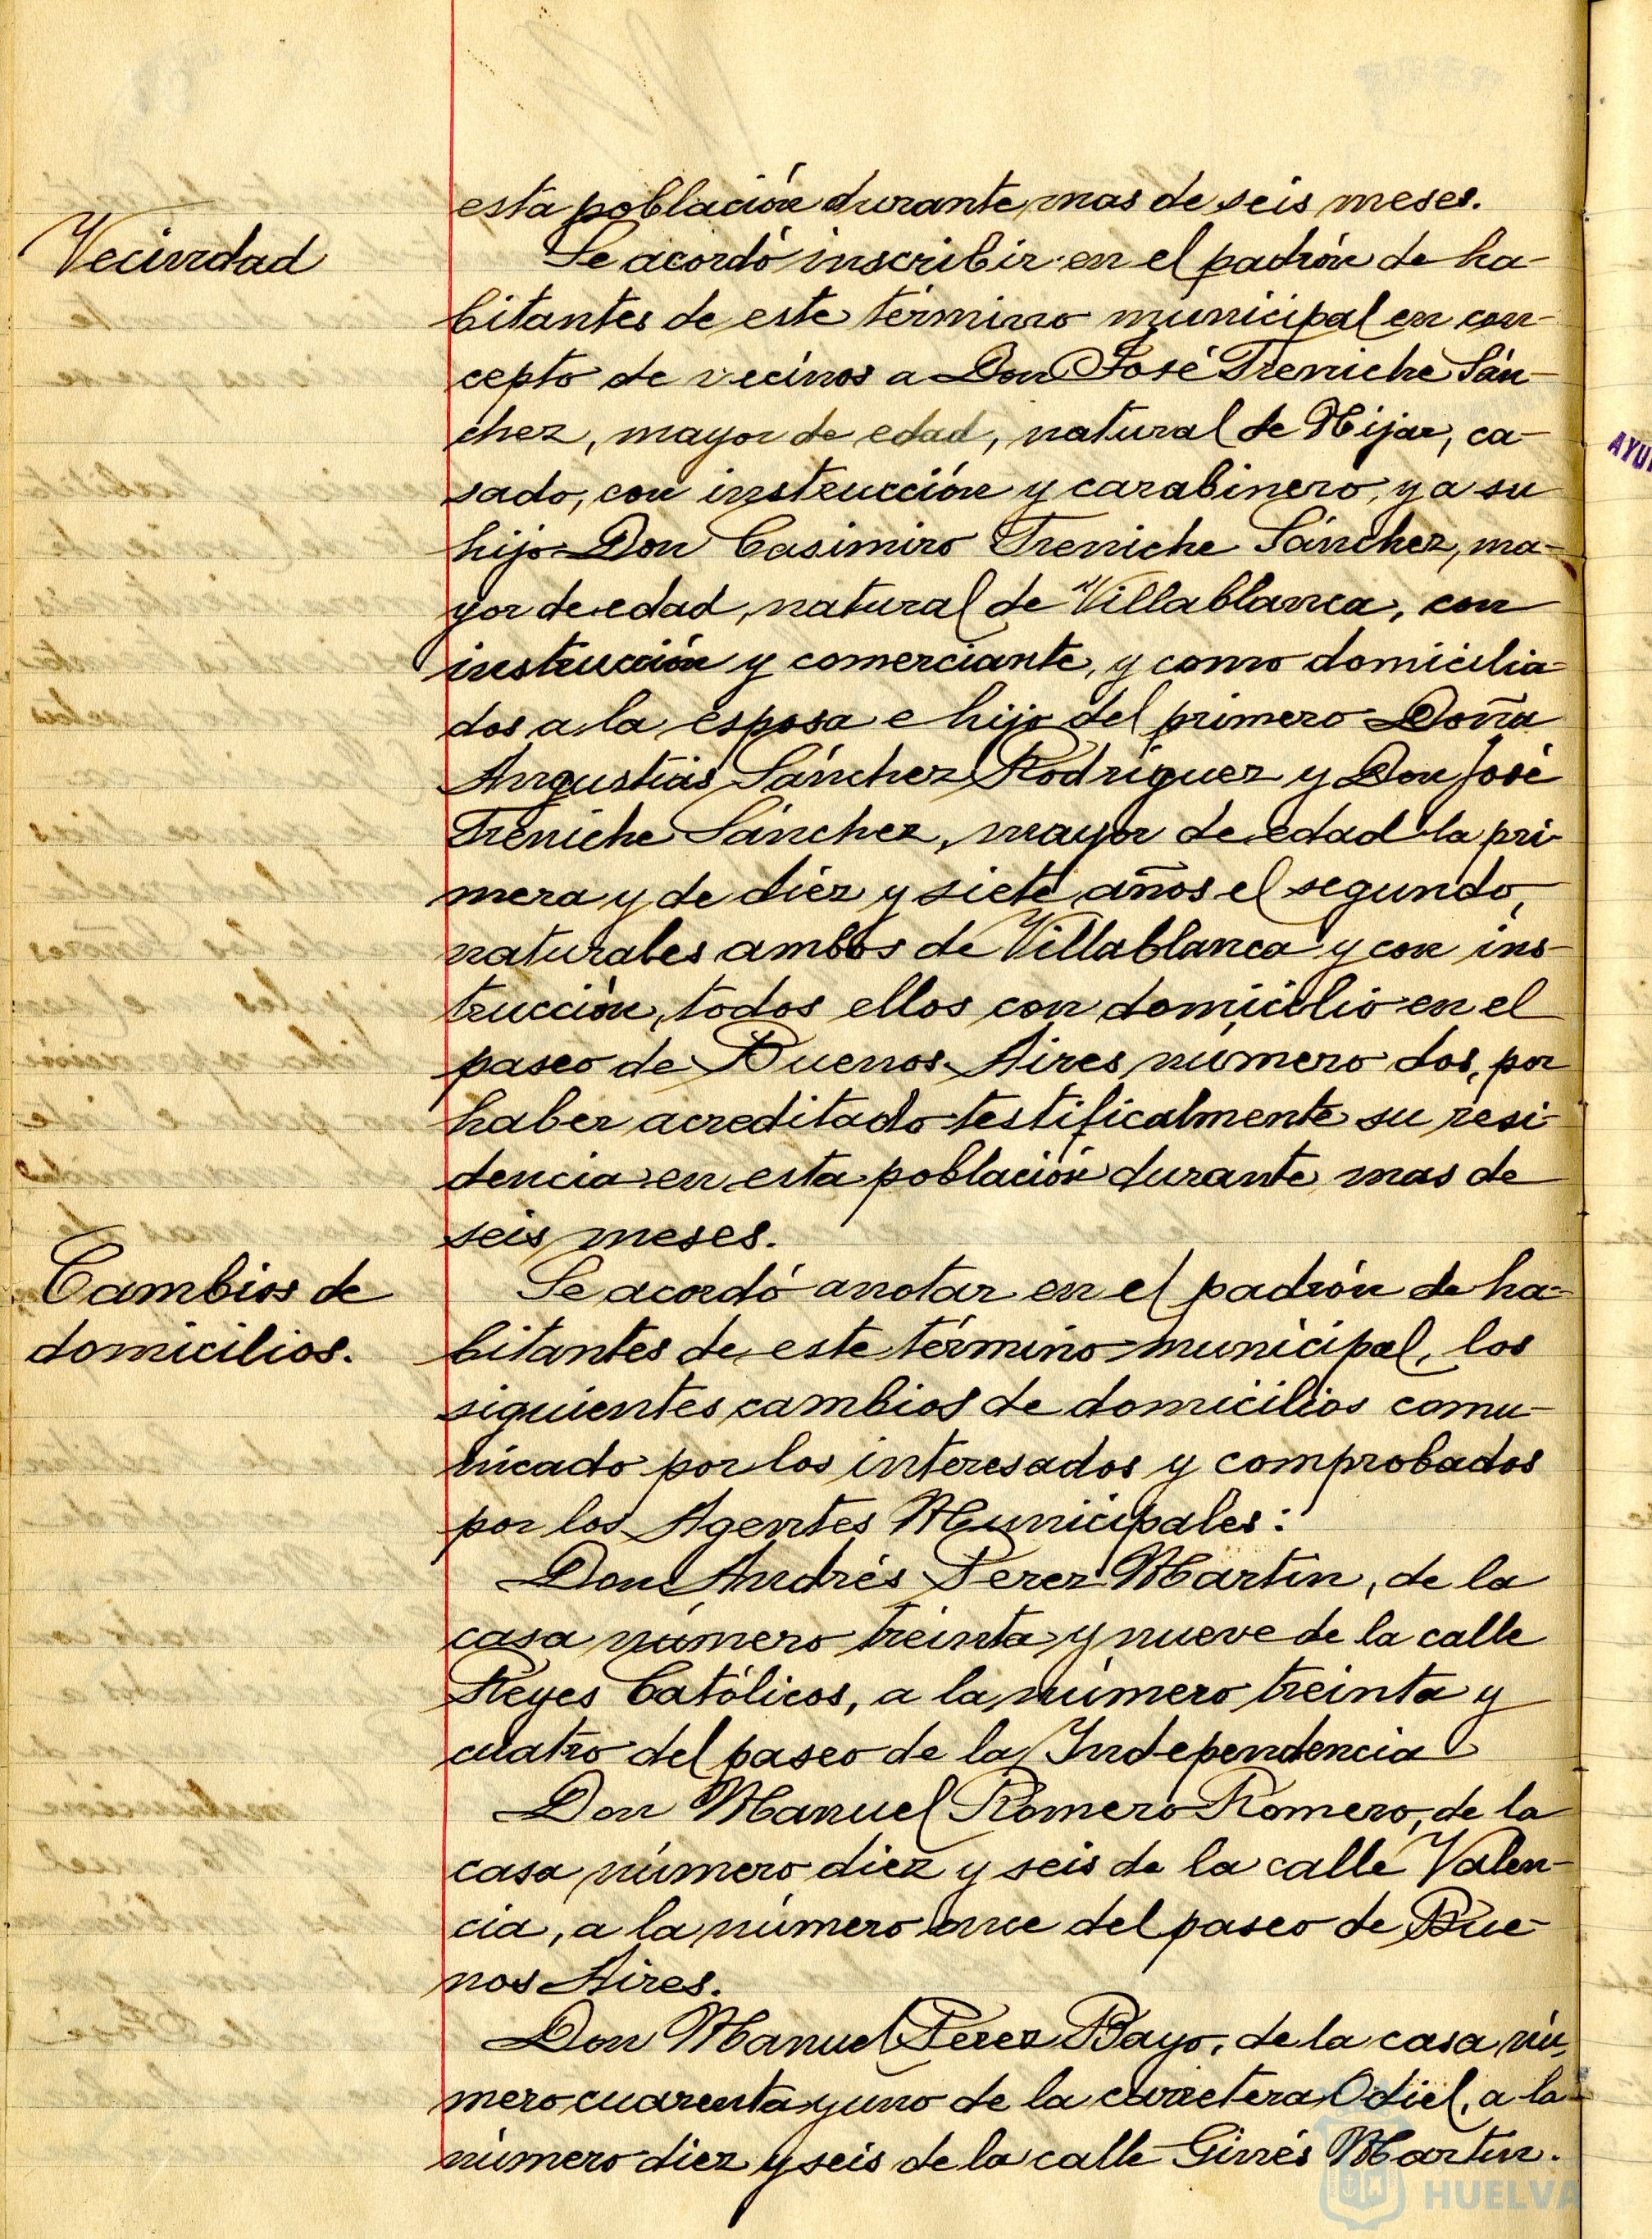 esta población durante mas de seis meses.
Vecindad
Se acordó inscribir en el padrón de ha-
bitantes de este término municipal en con-
cepto de vecinos a Don José Treniche Sán-
chez, mayor de edad, natural de Nijar, ca-
sado, con instrucción y carabinero, y a su
hijo Don Casimiro Treniche Sánchez, ma-
yor de edad, natural de Villablanca, con
instrucción y comerciante, y como domicilia-
dos a la esposa e hijo del primero Doña
Angustias Sánchez Rodríguez y Don José
Treniche Sánchez, mayor de edad la pri-
mera y de diez y siete años el segundo,
naturales ambos de Villablanca y con ins-
trucción, todos ellos con domicilio en el
paseo de Buenos Aires número dos, por
haber acreditado testificalmente su resi-
dencia en esta población durante mas de
seis meses.
Cambios de
domicilios.
Se acordó anotar en el padrón de ha-
bitantes de este término municipal, los
siguientes cambios de domicilios comu-
nicado por los interesados y comprobados
por los Agentes Municipales:
Don Andrés Perez Martin, de la
casa número treinta y nueve de la calle
Reyes Católicos, a la número treinta y
cuatro del paseo de la Independencia
Don Manuel Romero Romero, de la
casa número diez y seis de la calle Valen-
cia, a la número once del paseo de Bue-
nos Aires.
Don Manuel Perez Bayo, de la casa nú-
mero cuarenta y uno de la carretera Odiel, a la
número diez y seis de la calle Ginés Martin.
HUELVA